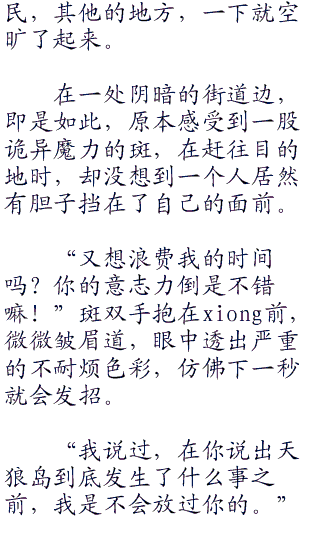 民，其他的地方，一下就空
旷了起来。
在一处阴暗的街道边，
即是如此，原本感受到一股
诡异魔力的斑，在赶往目的
地时，却没想到一个人居然
有胆子挡在了自己的面前。
“又想浪费我的时间
吗？你的意志力倒是不错
嘛！”斑双手抱在xiong前，
微微皱眉道，眼中透出严重
的不耐烦色彩，仿佛下一秒
就会发招。
“我说过，在你说出天
狼岛到底发生了什么事之
前，我是不会放过你的。”